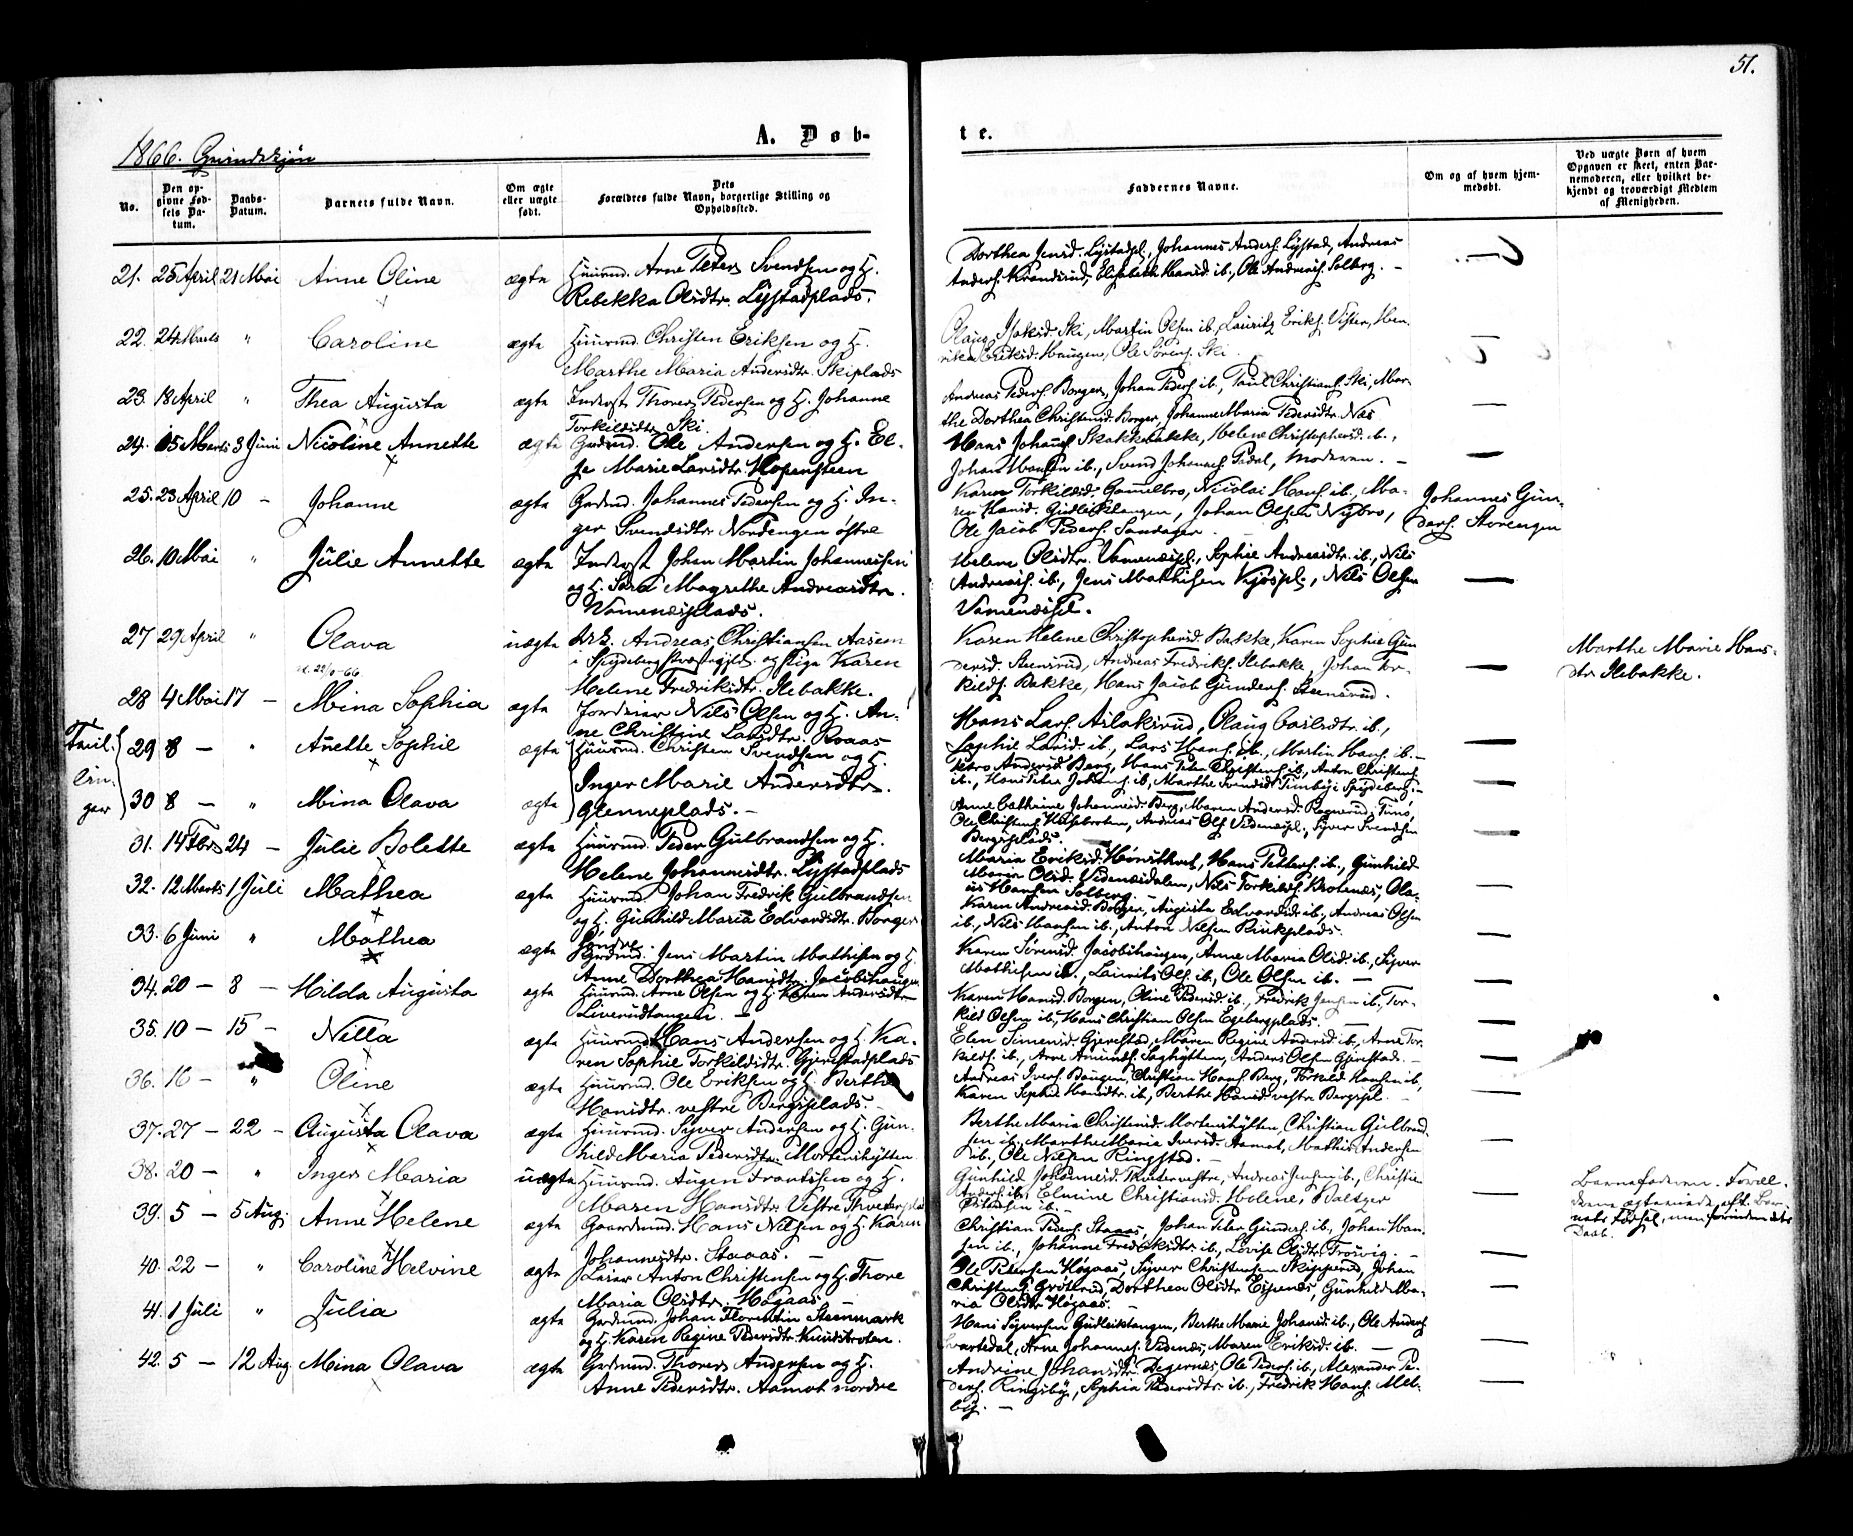 51.
A. Døb-
te.
1866. Grindskjøn
No.
Den op-
givne Fød-
sels Da-
tum.
Daabs-
Datum.
Barnets fulde Navn.
Om ægte
eller uægte
født.
Dets
Forældres fulde Navn, borgerlige Stilling og
Opholdssted.
Faddernes Navne.
Om og af hvem hjem-
medøbt.
Ved uægte Børn af hvem
Opgaven er skeet, enten Bar-
nemoderen, eller hvilket be-
kjendt og troværdigt Medlem
af Menigheden.
21. 25 April 21 Mai Anne Oline ægte Huusmd. Arne Peter Svendsen og H.
Rebekka Olsdtr. Lystadplads.
Dorthea Jensd. Lystadpl., Johannes Anders. Lystad, Andreas
Anders. Kranderud, Elisabeth Hansd. ib., Ole Andreas. Solberg. –
22. 24 Marts " Caroline ægte Huusmd. Christen Eriksen og H.
Marthe Maria Andersdtr. Skiplads
Olaug Isaksd. Ski, Martin Olsen ib., Lauritz Eriks. Vister, Hen-
rikea Eriksd. Haugen, Ole Sørens. Ski.
23. 18 April " Thea Augusta ægte Inderst Thorer Pedersen og H. Johanne
Torkildsdtr. Ski.
Andreas Peders. Borger, Johan Peders. ib., Paul Christians. Ski, Mar-
the Dorthea Christensd. Borger, Johanne Maria Pedersdtr. Næs
24. 15 Marts 3 Juni Nicoline Annette ægte Grdmd. Ole Andersen og H. El-
se Marie Larsdtr. Hopensteen
Hans Johans. Skakkebakke, Helene Christophersd. ib.,
Johan Hansen ib., Svend Johannes. Dal, Moderen. –
25. 23 April 10 – Johanne ægte Grdmd. Johannes Pedersen og H. In-
ger Svendsdtr. Nordengen østre
Karen Torkildsd. Gammelbro, Nicolai Hans. ib., Ma-
ren Hansd. Gudleiklangen, Johan Olsen Nybro,
Ole Jacob Peders. Sandager
Johannes Gun-
ders. Storengen
26. 10 Mai " Julie Annette ægte Inderst Johan Martin Johannessen
og H. Sara Magrethe Andreasdtr.
Vamenæsplads.
Helene Olsdtr. Vamenæspl., Sophie Andreasdtr. ib., Nils
Andreas. ib., Jens Mathisen Kjøspl., Nils Olsen
Vamenæspl.
27 29 April " Olava uægte Arb. Andreas Christiansen Aasem
i Spydeberg Præstegjeld. og Pige Karen
Helene Fredriksdtr. Ilebakke.
Karen Helene Christophersd. Bakke, Karen Sophie Gun-
dersd. Steensrud, Andreas Fredriks. Ilebakke, Johan Tor-
kilds. Bakke, Hans Jacob Gunders. Steensrud.
Marthe Marie Hans-
dtr. Ilebakke.
28 4 Mai 17 – Mina Sophia ægte Jordeier Nils Olsen og H. An-
ne Christine Larsdtr. Roaas
Hans Lars. Aslaksrud, Olaug Carlsdtr. ib.,
Sophie Larsd. ib., Lars Hans. ib., Martin Hans. ib. –
Tvil-
lin-
ger
29 8 – " Anette Sophie ægte Huusmd. Christen Svendsen og H.
Inger Marie Andersdtr.
Glenneplads. –
Andersd. Berg, Hans Peter Christens. ib., Anton Christens.
ib., Hans Peter Johans. ib., Marthe Svendsd. i Spydeberg. –
30 8 – " Mina Olava ægte
Anne Cathrine Johannesd. Berg, Maren Andersd. Ragnerud,
Ole Christens. Haslebroten, Andreas Ols. Videnæspl., Syver Svendsen
Bergsplads.
31. 14 Febr 24 – Julie Bolette ægte Huusmd. Peder Gulbrandsen og H.
Helene Johannesdtr. Lystadplads
Maria Eriksd. Hans Petters. ib., Gunhild
32. 12 Marts 1 Juli Mathea ægte Huusmd. Johan Fredrik Gulbrandsen
og H. Gunhild Maria Edvardsdtr. Borger
Maria Olsd. Videnæsdalen, Nils Torkilds. Krokenæs, Ola-
us Hansen Solberg
Karen Andreasd. Borger, Augusta Edvardsd. ib., Andreas Olsen
ib., Nils Hansen ib., Anton Nilsen Rinkplads.
33. 6 Juni " Mathea ægte Grdmd. Jens Martin Mathisen og H.
Anne Dorthea Hansdtr. Jacobshaugen
Karen Sørensd. Jacobshaugen, Anne Maria Olsd. ib., Syver
Mathisen ib., Laurits Ols. ib., Ole Olsen ib. –
34. 20 – 8 – Hilda Augusta ægte Huusmd. Arne Olsen og H. Karen Andersdtr.
Liverudtangen. –
Karen Hansd. Borgen, Oline Pedersd. ib., Fredrik Jensen ib., Tor-
kild Olsen ib., Hans Christian Olsen Egebergplads.
35. 10 – 15 – Nilla ægte Huusmd. Hans Andersen og H. Ka-
ren Sophie Torkildsdtr. Gjerstadplads
Elen Simensd. Gjerstad, Maren Regine Andersd. ib., Arne Tor-
kilds. ib., Arne Amunds. Saghytten, Anders Olsen Gjerstad. –
36. 16 – " Oline ægte Huusmd. Ole Eriksen og H. Berthe
Hansdtr. vestre Bergsplads.
Andreas Ivers. Baugen, Christian Hans. Berg, Torkild Hansen ib,
Karen Sophie Hansdtr. ib., Berthe Hansd. vestre Bergspl. –
37. 27 – 22 – Augusta Olava ægte Huusmd. Syver Andersen og H. Gun-
hild Maria Pedersdtr. Mortenshytten
Berthe Maria Christensd. Mortenshytten, Christian Gulbrand-
sen ib., Marthe Maria Iversd. Aamot, Mathias Andersen
ib., Ole Nilsen Ringstad. –
38. 20 – " Inger Maria uægte Huusmd. Augen Frantsen og H.
Maren Hansdtr. Vestre
Gunhild Johannesd. vestre, Andreas Jensen ib., Christian
Anders. ib., Elmine Christiansd. Holene, Baltzer
ib. –
Barnefaderen. Foræl-
drene ægteviede eft. Bar-
nets Fødsel, men forinden dets
Daab.
39. 5 – 5 Aug. Anne Helene ægte Gaardmd. Hans Nilsen og H. Karen
Johannesdtr. Staaas. –
Christian Peders. Staaas, Johan Peter Gunders. ib., Johan Han-
sen ib., Johanne Fredriksdtr. ib., Lovise Olsdtr. Trosvig. –
40. 22 – " Caroline Helvine ægte Anton Christensen og H. Thore
Maria Olsdtr. Høgaas. –
Ole Petersen Høgaas, Syver Christensen Skipperud, Johan
Christens. Grøterud, Dorthea Olsdtr. Espenæs, Gunhild Ma-
ria Olsdtr. Høgaas. –
41. 1 Juli " Julia ægte Grdmd. Johan Florentin Steenmark
og H. Karen Regine Pedersdtr. Knudsbroten.
Hans Syversen Gudleiktangen, Berthe Marie Johansd. ib., Ole Anders.
Svartedal, Arne Johannes. Videnæs, Maren Eriksd. ib. –
42. 5 – 12 Aug. Mina Olava ægte Grdmd. Thorer Andersen og H.
Anne Pedersdtr. Aamot nordre
Andrine Johansdtr. Degernæs, Ole Peders. ib., Alexander Pe-
ders. Ringsby, Sophia Pedersdtr. ib., Fredrik Hans. Mel-
by. –